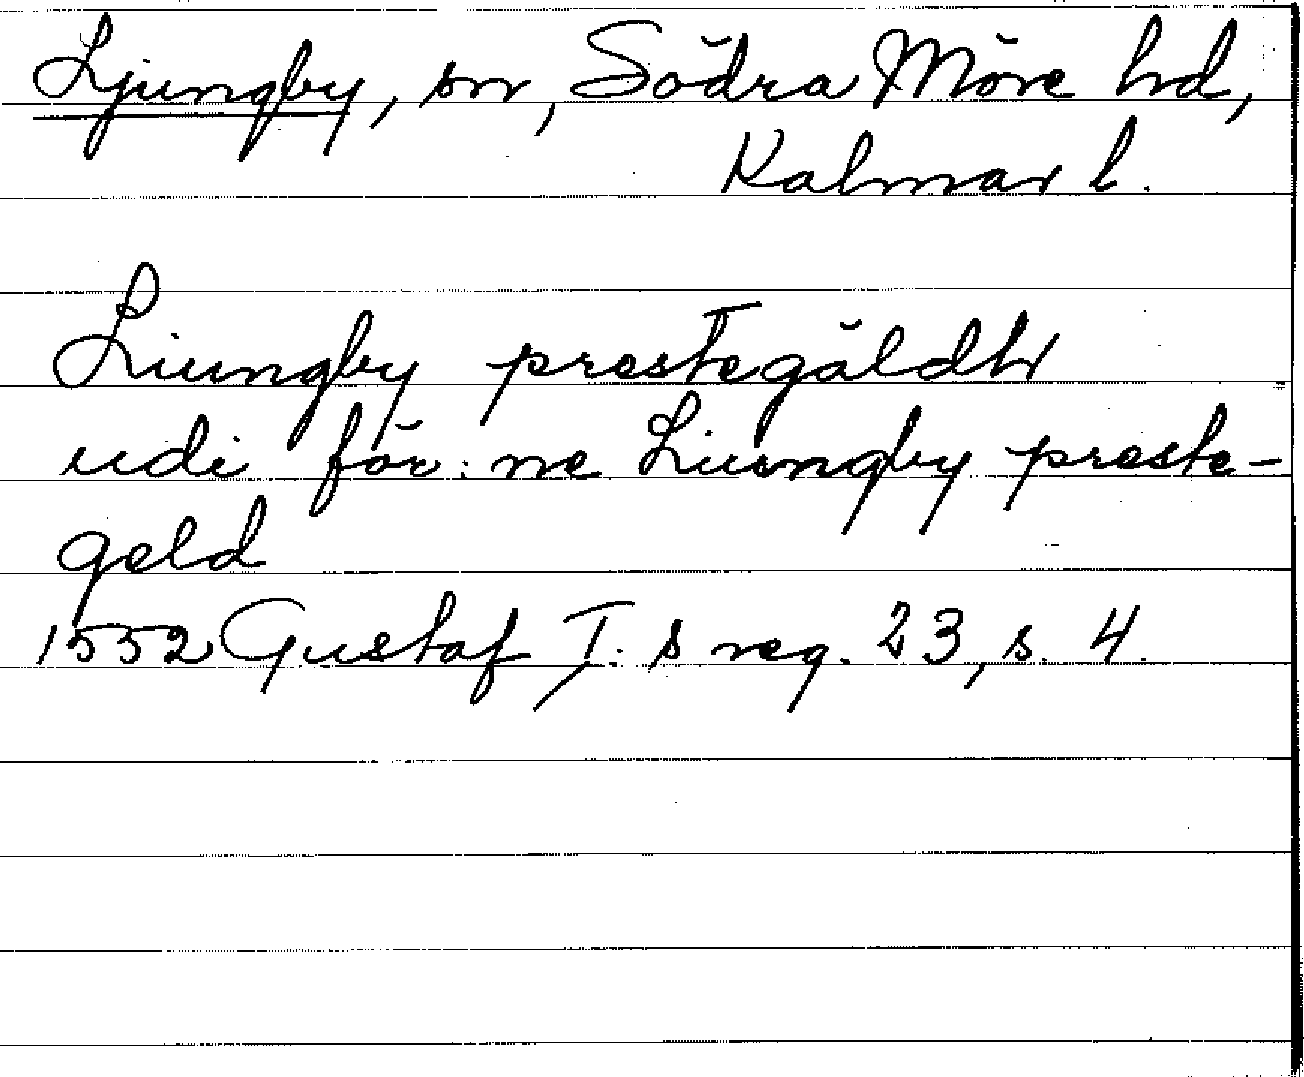 Ljungby, sn, Södra Möre hd,
Kalmar l.
Liungby prestegäldh
udi för:ne Liungby preste-
geld
1552 Gustaf I:s reg. 23, s. 4.